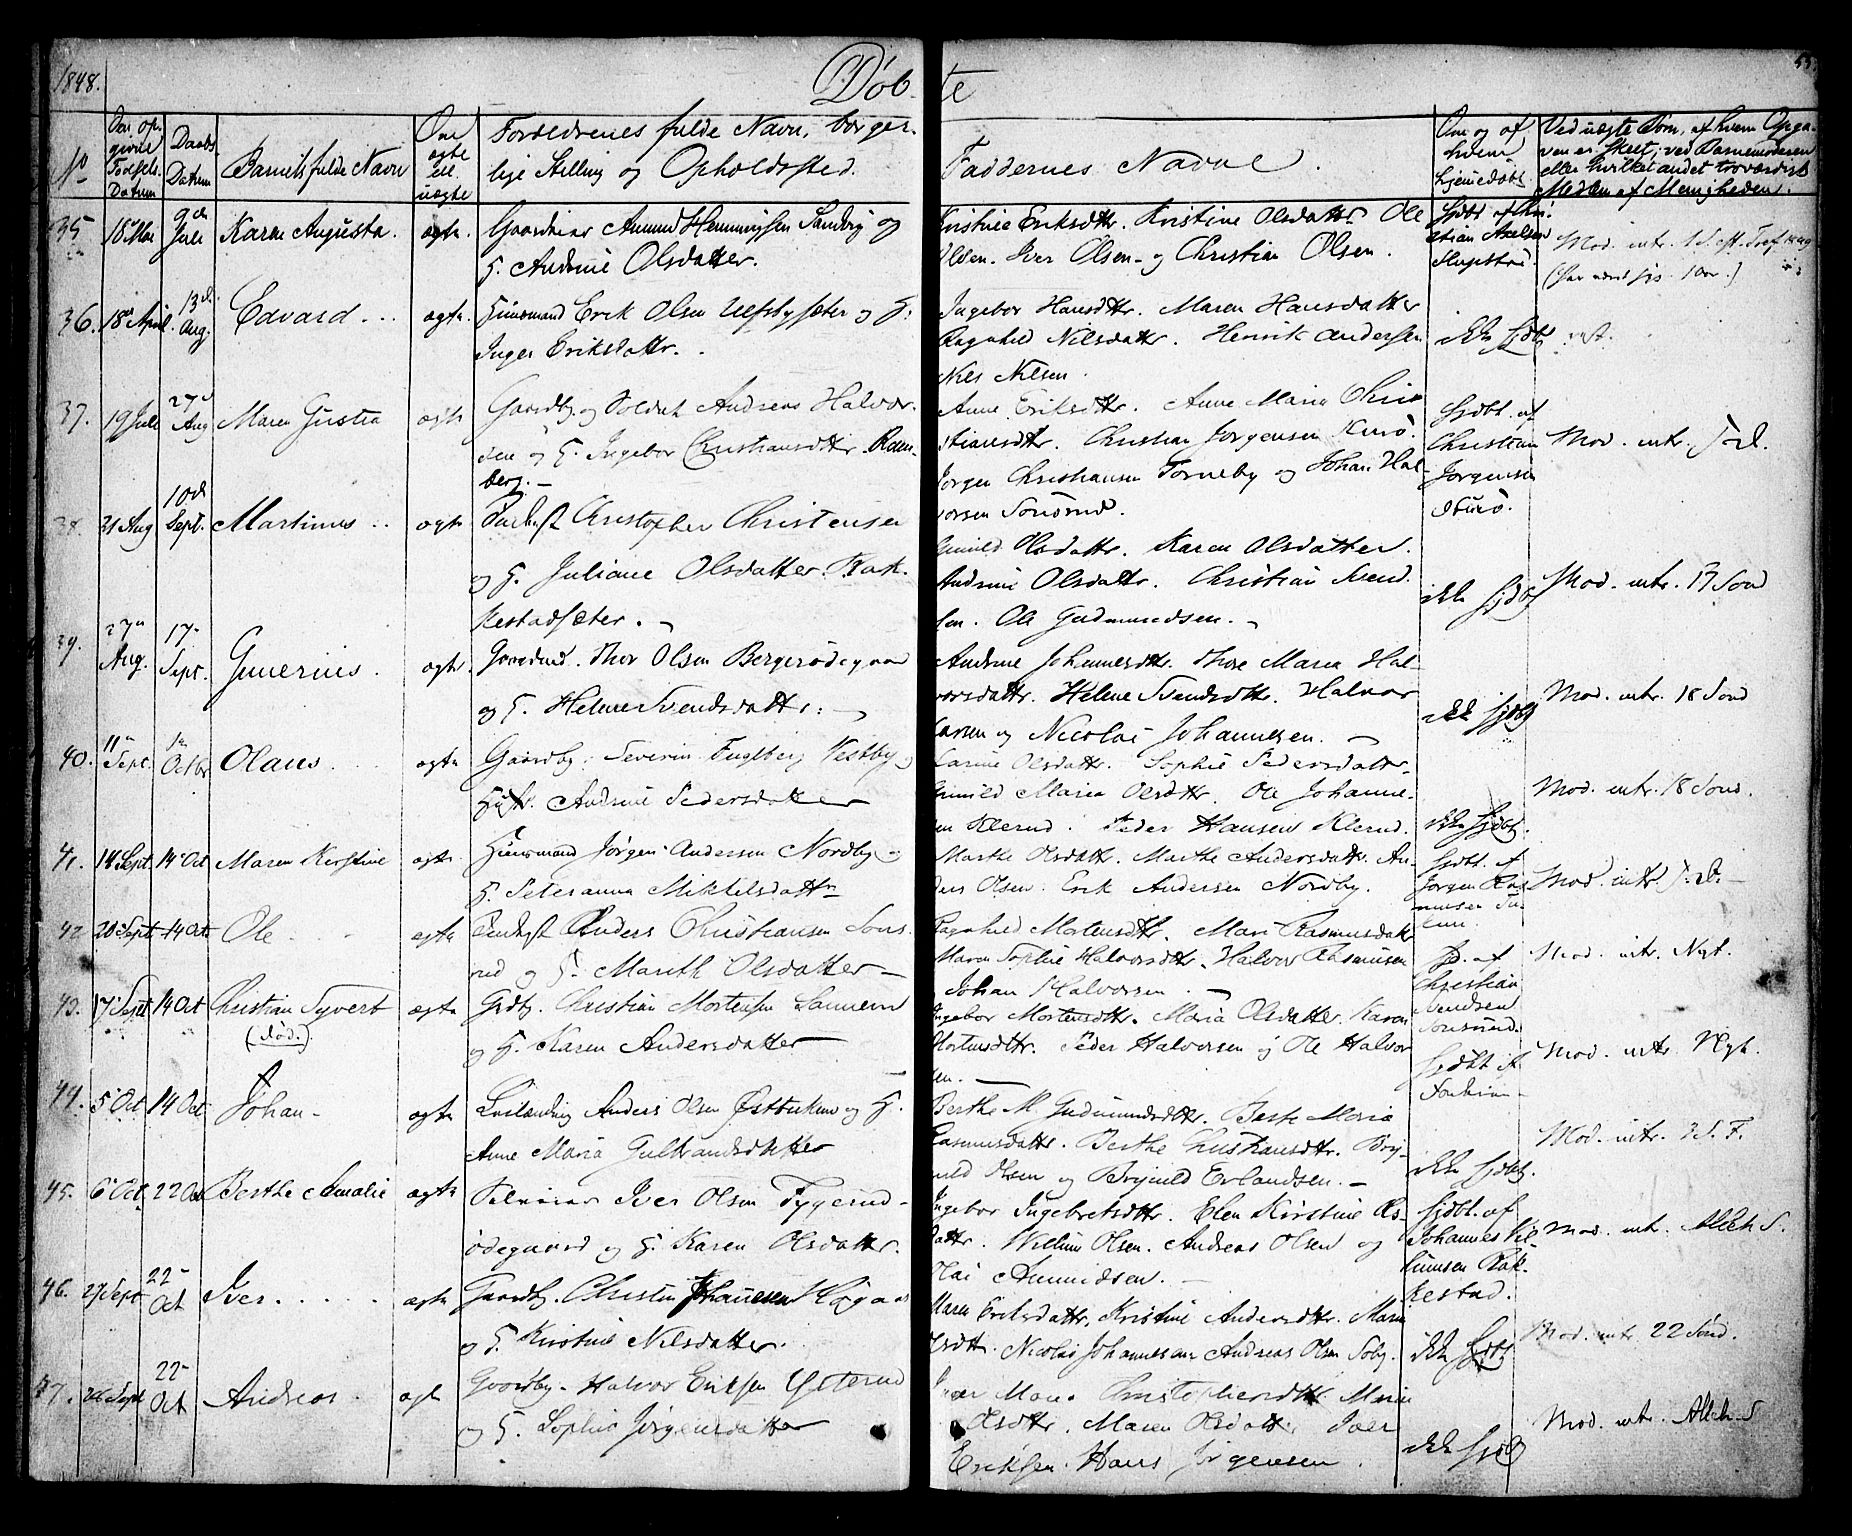 1848.
Døb te
55
No
Den op-
givne
Fødsels-
Datum
Daabs-
Datum
Barnets fulde Navn
Om
ægte
ell.
uægte
Forældrenes fulde Navn, borger-
lige Stilling og Opholdssted.
Faddernes Navne.
Om og af
hvem
hjemedøbt
Ved uægte Børn, af hvem Opga-
ven er skeet; ved Barnemoderen
eller hvilket andet troværdigt
Medlem af Menigheden.
35 18 Mai 9de Juli Karen Augusta. ægte. Gaardmar Amund Hemmingsen Sandvig og
H. Andrine Olsdatter.
Kristine Eriksdttr. Kristine Olsdattr. Ole
Olsen. Iver Olsen og Christian Olsen.
hjdbt af Chri-
stian Axelsen
Mod. intr. 1 S. eft.
36. 18de April. 13d. Aug. Edvard ægte. Huusmand Erik Olsen Ulfsbysæter og H.
Inger Eriksdattr.
Ingebor Hansdttr. Maren Hansdatter
Ragnhild Nilsdattr. Henrik Andersen
Nils Nilsen.
ikke hjdbt
37. 19 Juli 27d Aug Maren Gustia ægte Gaardby. og Soldat Andreas Halvor-
sen og H. Ingebor Christiansdttr. Ram-
berg.
Anne Eriksdttr. Anne Maria Chri-
stiansdttr. Christian Jørgensen
Jørgen Christiansen Torneby og Johan Hal-
vorsen Sonsrud.
hjdbt. af
Christian
Jørgensen
Mod. intr. s. D.
38. 31 Aug 10d Sept. Martinus ægte Christopher Christensen
og H. Juliane Olsdatter. Rak-
kestadsæter.
Gunild Olsdattr. Karen Olsdatter.
Andrine Olsdattr. Christian Svend-
sen. Ole Gudmundsen.
ikke hjdbt
Mod. intr. 17 Sønd
39. 27de Aug. 17 Sept. Gunerius. ægte. Thor Olsen Bergerødegaard
og H. Helene Svendsdattr.
Andrine Johannesdttr. Thore Maria Hal-
vorsdattr. Helene Svendsdttr. Halvor
Larsen og Nicolai Johannesen.
ikke hjdbt
Mod. intr. 18 Sønd
40. 11te Sept. 1te Octbr Olaus ægte Gaardby. Severin Fugleberg Vestby
Hustr. Andrine Pedersdatter
Karine Olsdattr. Sophie Pedersdattr.
Gunild Maria Olsdttr. Ole Johanne-
sen Klerud. Peder Hansen Klerud.
ikke hjdbt.
Mod. intr. 18 Sønd.
41. 14 Sept. 14 Oct Maren Kirstine ægte. Huusmand Jørgen Andersen Nordby og
H. Peteranna Mikkelsdattr
Marthe Olsdattr. Marthe Andersdattr. An-
ders Olsen. Erik Andersen Nordby.
hjdbt. af
Jørgen Ras-
musen
Mod. intr. s. D.
42 20 Sept 14 Oct Ole ægte Anders Christiansen Sons-
rud og H. Marith Olsdatter
Ragnhild Mortensdttr. Mari Rasmusdattr
Maren Sophie Halvorsdttr. Halvor Rasmusen
Johan Halvorsen.
hjd. af
Christian
Svendsen
Sonsrud.
Mod. intr. Nyt.
43. 17 Sept 14 Oct Christian Syvert
(død.)
ægte Grdby. Christian Mortensen Sannem
og H. Karen Andersdatter
Ingebor Mortensdttr. Maria Olsdatter. Karen
Mortensdttr. Peder Halvorsen og Ole Halvor
sen.
hjdbt af
Mod. intr. Nyt.
44. 5 Oct 14 Oct Johan ægte Anders Olsen Østbukene og H.
Anne Maria Gulbrandsdatter
Berthe M. Gudmundsdttr. Berthe Maria
Rasmusdattr. Berthe Christiansdttr. Bryn-
uld Olsen og Brynuld Erlandsen.
ikke hjdbt.
Mod. intr. 3 S. F.
45. 6 Oct 22 Oct Berthe Amalie ægte Iver Olsen Tyggerud-
ødegaard og H. Karen Olsdattr.
Ingebor Ingebretsdttr. Elen Kirstine Ols-
dattr. Willum Olsen. Andreas Olsen og
Olai Amundsen.
hjdbt. af
Johannes Vil-
lumsen Rak-
kestad.
Mod. int. Alleh S.
46. 27 Sept 22 Oct Iver ægte Gaardby. Christen Johannesen Haga
og H. Kirstine Nilsdatter.
Maren Eriksdattr. Kristine Andersdttr. Maria
Olsdtt. Nicolai Johannesen Andreas Olsen Soby.
ikke hjdbt
Mod. intr. 22 Sønd.
47. 26 Sept 22 Oct Andreas ægte Gaardby. Halvor Eriksen Ysterud
og H. Sophie Jørgensdatter
Maria Christophersdttr Maria
Olsdttr. Maren Olsdattr. Iver
Eriksen. Hans Jørgensen.
ikke hjdb
Mod. intr. Alleh. S